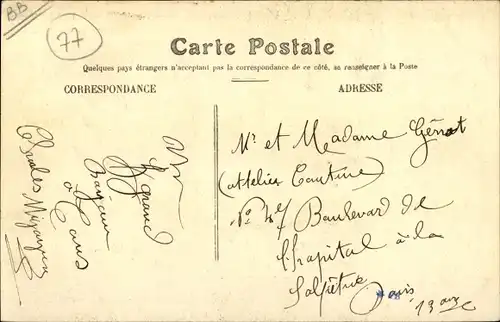 BB
77
Carte Postale
Quelques pays étrangers n'acceptant pas la correspondance de ce côté, se renseigner à la Poste
CORRESPONDANCE
ADRESSE
Un
Grand
Bonjour
à Tous
Charles
Mr et Madame Génot
(attelier Couture)
No 47 Boulevard de
l'hopital à la
Salpétrie
Paris
13 arr